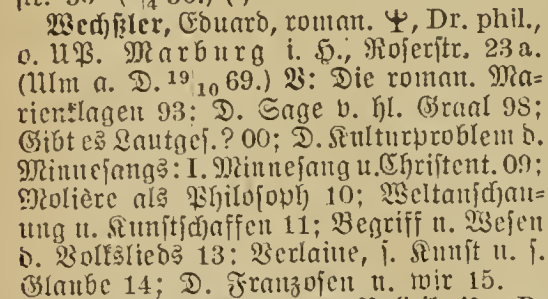 Wechßler, Eduard, roman. Ψ, Dr. phil.,
o. UP. Marburg i. H., Roserstr. 23a.
(Ulm a. D. 19/10 69.) V: Die roman. Ma-
rienklagen 93; D. Sage v. hl. Graal 98;
Gibt es Lautges.? 00; D. Kulturproblem d.
Minnesangs: I. Minnesang u. Christent. 09;
Molière als Philosoph 10; Weltanschau-
ung u. Kunstschaffen 11; Begriff u. Wesen
d. Volkslieds 13; Verlaine, s. Kunst u. s.
Glaube 14; D. Franzosen u. wir 15.